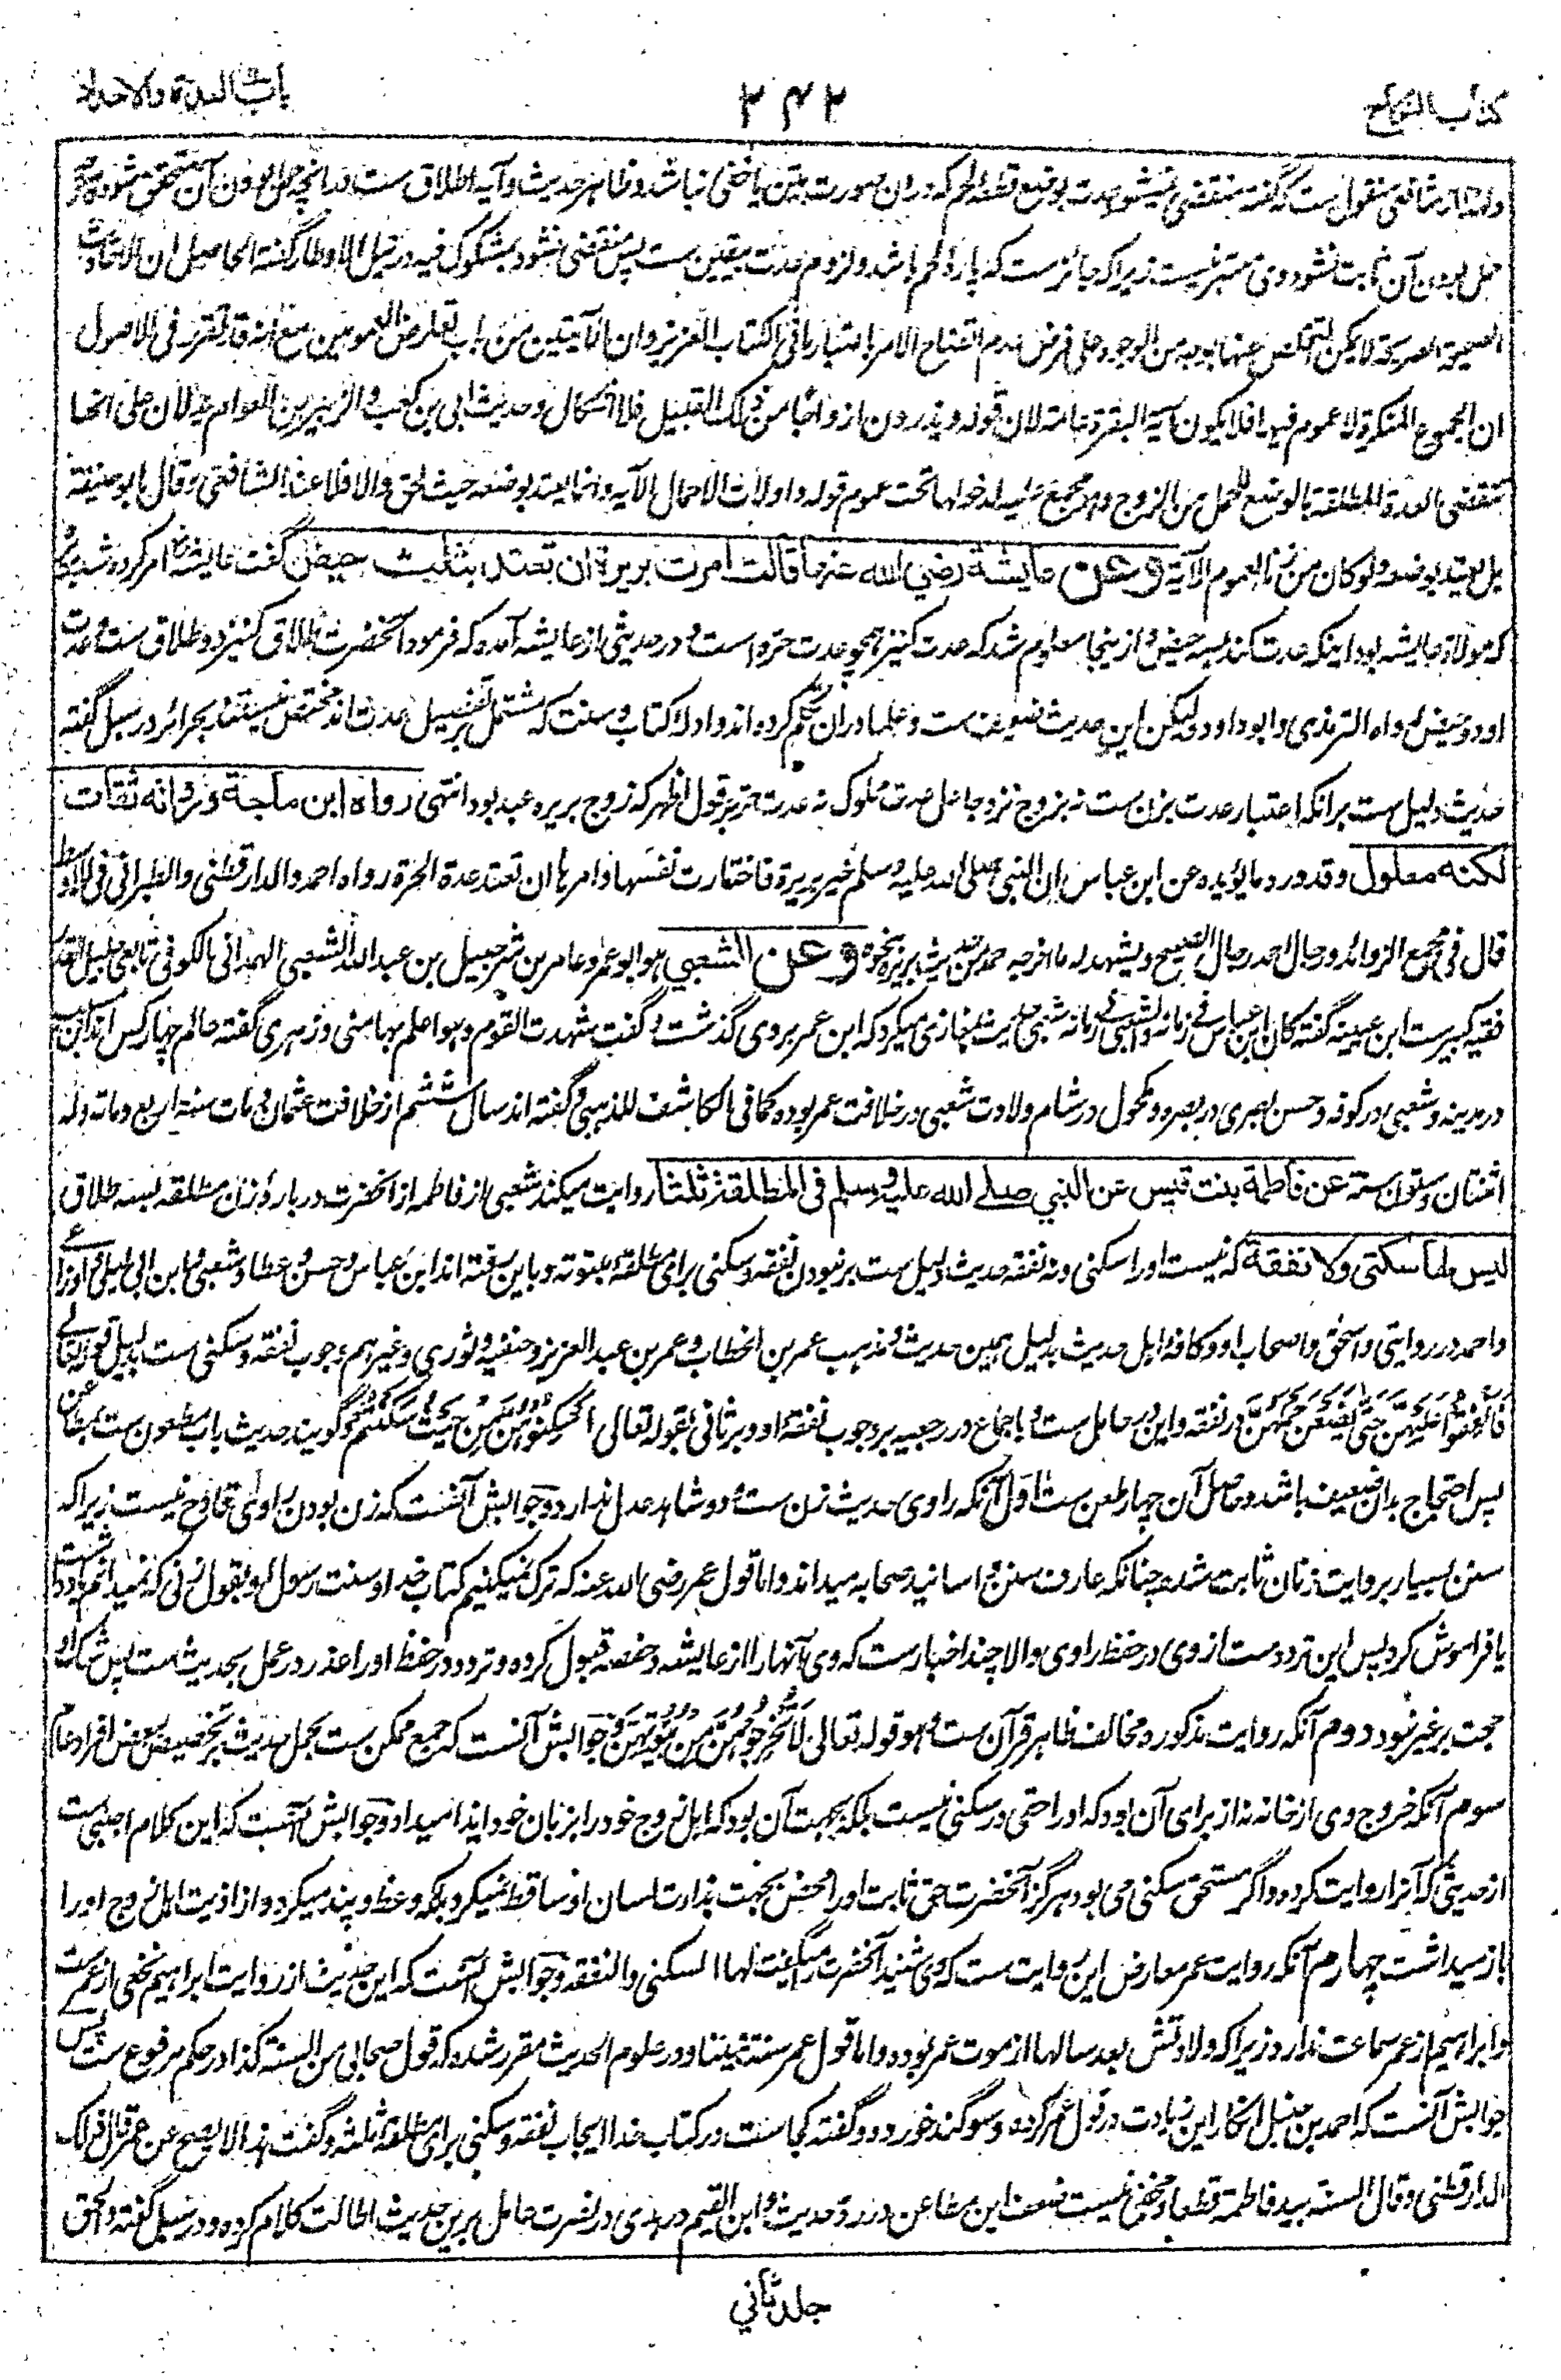 کتاب النکاح
۲۴۲
باب العدة والاحداد
و از شافعی منقول ست که گفته منقضی نمیشود عدت بوضع قطعه لحم که دران صورت بین یا خفی نباشد و ظاهر حدیث و آیه اطلاق ست در انچه حمل بودن آن متحقق شود و هر چه
حمل بودن آن ثابت نشود وی معتبر نیست زیرا که جائز ست که پاره لحم باشد و لزوم عدت بیقین ست پس منقضی نشود بمشکوک فیه در نیل الاوطار گفته الحاصل ان الاحادیث
الصحیحة الصریحة لا یمکن التخلص عنها بوجه من الوجوه علی فرض عدم اتضاح الامر باعتبار ما فی الکتاب العزیز و ان الآیتین من باب تعارض العمومین مع انه قد تقرر فی الاصول
ان الجموع المنکرة لا عموم فیها فلا یکون آیة البقرة عامة لان قوله و یذرون ازواجا من ذلک القبیل فلا اشکال و حدیث ابی بن کعب و الزبیر بن العوام یدلان علی انها
تنقضی العدة المطلقة بالوضع للحمل من الزوج و هو مجمع علیه لدخولها تحت عموم قوله و اولات الاحمال الآیه و انما یعتد بوضعه حیث لحق و الا فلا عند الشافعی و قال ابو حنیفة
بل یعتد بوضعه و لو کان من زنا لعموم الآیة وعن عایشة رضي الله عنها قالت امرت بریرة ان تعتد بثلث حیض گفت عایشه امر کرده شد بریره
که مولاة عایشه بود اینکه عدت کند بسه حیض و از ینجا معلوم شد که عدت کنیز همچو عدت حره است و در حدیثی از عایشه آمده که فرمود آنحضرت طلاق کنیز دو طلاق ست و عدت
او دو حیض رواه الترمذی و ابو داود و لیکن این حدیث ضعیف ست و علما دران تکلم کرده اند و ادله کتاب و سنت که مشتمل بر تفصیل عدت اند مختص نیستند بحرائر در سبل گفته
حدیث دلیل ست برانکه اعتبار عدت بزن ست نه بزوج نزد جاعل عدت مملوک نه عدت حر بر قول اظهر که زوج بریره عبد بود انتهی رواه ابن ماجة ورواته ثقات
لکنه معلول و قد ورد ما یؤیده عن ابن عباس ان النبی صلی الله علیه وسلم خیر بریرة فاختارت نفسها و امرها ان تعتد عدة الحرة رواه احمد و الدارقطنی و الطبرانی فی الاوسط
قال فی مجمع الزوائد و رجال احمد رجال الصحیح و یشهد له ما اخرجه احمد من حدیث بریرة بنحوه وعن الشعبي هو ابو عمرو عامر بن شرحبیل بن عبد الله الشعبی الهمدانی الکوفی تابعی جلیل القدر
فقیه کبیر ست ابن عیینه گفته کان ابن عباس فی زمانه و الشعبی فی زمانه شعبی حدیث مغازی میکرد که ابن عمر بروی گذشت و گفت شهدت القوم و هو اعلم بها منی و زهری گفته عالم چهار کس اند ابن مسیب
در مدینه و شعبی در کوفه و حسن بصری در بصره و مکحول در شام ولادت شعبی در خلافت عمر بوده کما فی الکاشف للذهبی و گفته اند سال ششم از خلافت عثمان و مات سنة اربع و مائة و له
اثنتان و ستون سنة عن فاطمة بنت قیس عن النبي صلے الله علیه وسلم فی المطلقة ثلثا روایت میکند شعبی از فاطمه از آنحضرت در باره زن مطلقه بسه طلاق
لیس لها سکنی ولا نفقة که نیست او را سکنی و نه نفقه حدیث دلیل ست بر نبودن نفقه و سکنی برای مطلقه مبتوته و باین رفته اند ابن عباس و حسن و عطا و شعبی و ابن ابی لیلی و اوزاعی
و احمد در روایتی و اسحق و اصحاب او و کافه اهل حدیث بدلیل همین حدیث و مذهب عمر بن الخطاب و عمر بن عبد العزیز و حنفیه و ثوری و غیرهم وجوب نفقه و سکنی ست بدلیل قوله تعالی
فَاَنْفِقُوْا عَلَیْهِنَّ حَتّٰی یَضَعْنَ حَمْلَهُنَّ در نفقه و این در حامل ست و باجماع در رجعیه بر وجوب نفقه او و بر ثانی بقوله تعالی اَسْکِنُوْهُنَّ مِنْ حَیْثُ سَکَنْتُمْ و گویند حدیث باب مطعون ست بمطاعن
پس احتجاج بدان ضعیف باشد و حاصل آن چهار طعن ست اول آنکه راوی حدیث زن ست و دو شاهد عدل ندارد و جوابش آنست که زن بودن راوی قادح نیست زیرا که
سنن بسیار بروایت زنان ثابت شده چنانکه عارف سنن و اسانید صحابه میداند و اما قول عمر رضی الله عنه که ترک نمیکنیم کتاب خدا و سنت رسول او بقول زنی که نمیدانم یاد داشت
یا فراموش کرد پس این تردد ست از وی در حفظ راوی و الا چند اخبار ست که وی آنها را از عایشه و حفصه قبول کرده و تردد در حفظ او را عذر در عمل بحدیث ست پس شک او
حجت بر غیر نبود دوم آنکه روایت مذکوره مخالف ظاهر قرآن ست و هو قوله تعالی لَا تُخْرِجُوْهُنَّ مِنْ بُیُوْتِهِنَّ و جوابش آنست که جمع ممکن ست بحمل حدیث بر تخصیص بعض افراد عام
سوم آنکه خروج وی از خانه نه از برای آن بود که او را حقی در سکنی نیست بلکه بجهت آن بود که اهل زوج خود را بزبان خود ایذا میداد و جوابش آنست که این کلام اجنبی ست
از حدیثی که آنرا روایت کرده و اگر مستحق سکنی می بود هرگز آنحضرت حق ثابت او را محض بجهت بذاءت لسان او ساقط نمیکرد بلکه وعظ و پند میکرد و از اذیت اهل زوج او را
باز میداشت چهارم آنکه روایت عمر معارض این روایت ست که وی شنید آنحضرت را میگفت لها السکنی و النفقه و جوابش آنست که این حدیث از روایت ابراهیم نخعی از عمر ست
و ابراهیم از عمر سماعت ندارد زیرا که ولادتش بعد سالها از موت عمر بوده و اما قول عمر سنة نبینا و در علوم الحدیث مقرر شده که قول صحابی من السنة کذا در حکم مرفوع ست پس
جوابش آنست که احمد بن حنبل انکار این زیادت در قول عمر کرده و سوگند خورده و گفته کجاست در کتاب خدا ایجاب نفقه و سکنی برای مطلقه ثلثه و گفت هذا لا یصح عن عمر قال ذلک
الدارقطنی و قال السنة بید فاطمة قطعا و مخفی نیست ضعف این مطاعن در رد حدیث و ابن القیم در هدی در نصرت عامل برین حدیث اطالت کلام کرده و در سبل گفته و الحق
جلد ثاني